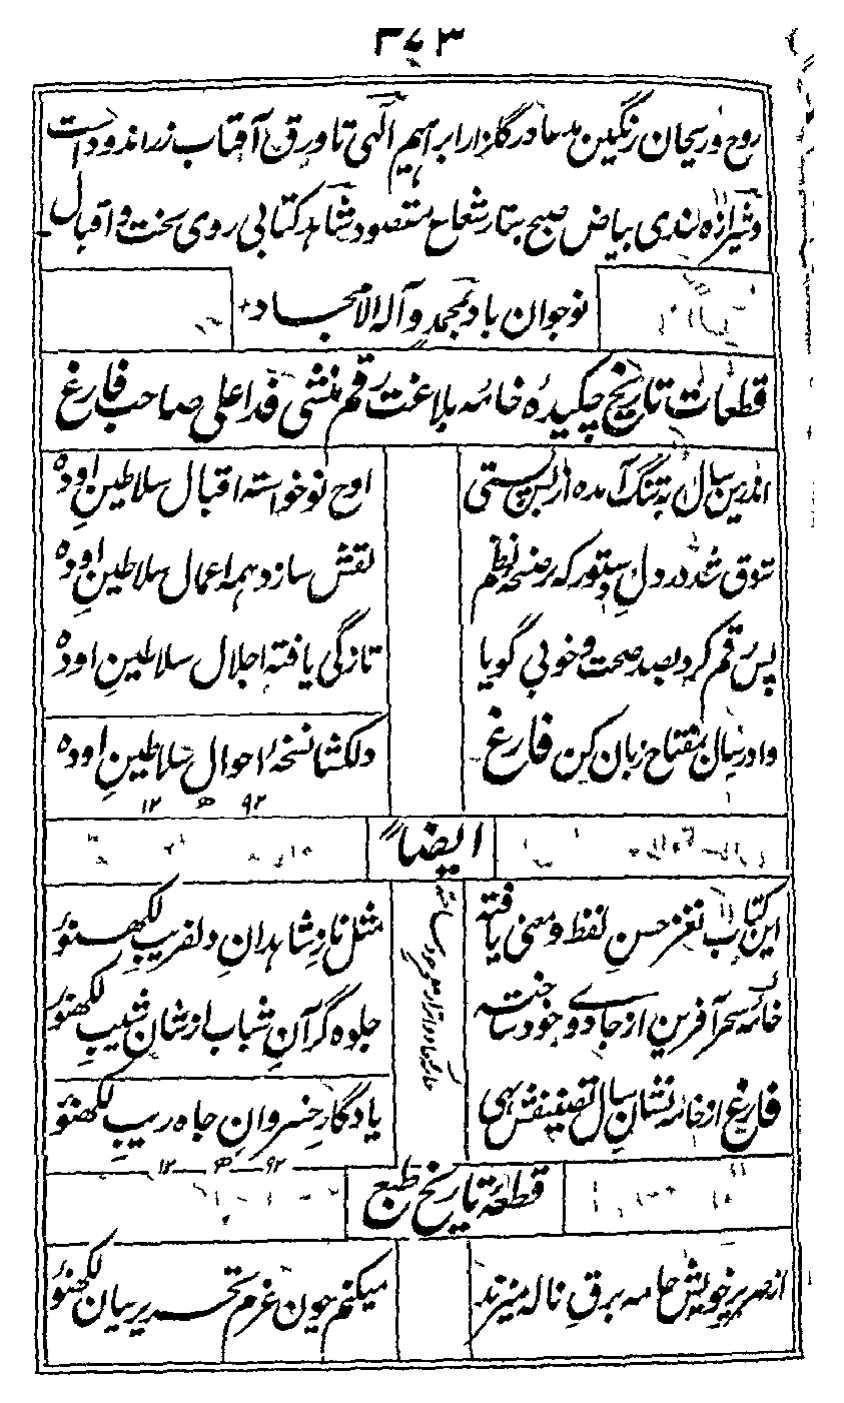 ۳۷۳
روح و ریحان رنگین مدعا در گلزار ابراهیم الٰهی تا ورق آفتاب زر اندود است
و شیرازه بندی بیاض صبح بتار شعاع مقصود شاهد کتابی روی سخت و اقبال
نوجوان باد بمحمد و آله الامجاد
قطعات تاریخ چکیدهٔ خامه بلاغت رقم منشی فدا علی صاحب فارغ
اندرین سال به تنگ آمده از پستی اوج نوخواسته اقبال سلاطینِ اوده
شوق شد در دلِ دستور که بر صفحهٔ نظم نقش سازد همه اعمال سلاطینِ اوده
پس رقم کرد بصد صحت و خوبی گویا تازگی یافته اجلال سلاطینِ اوده
وا در سال بمفتاح زبان کن فارغ دلکشا نسخهٔ احوال سلاطینِ اوده
۱۲ ھ ۹۲
ایضاً
این کتاب نغز حسنِ لفظ و معنی یافته مثل نازِ شاهدانِ دلفریبِ لکھنؤ
خامهٔ سحر آفرین از جادوے خود ساخته جلوه گر آنِ شباب از شانِ شیبِ لکھنؤ
فارغ از خامه نشانِ سال تصنیفش بهی یادگارِ خسروانِ جاه ریبِ لکھنؤ
۱۲ ھ ۹۲
قطعهٔ تاریخ طبع
از صریر خویش خامه برقِ ناله میزند میکنم چون عزم تحریر بیان لکھنؤ